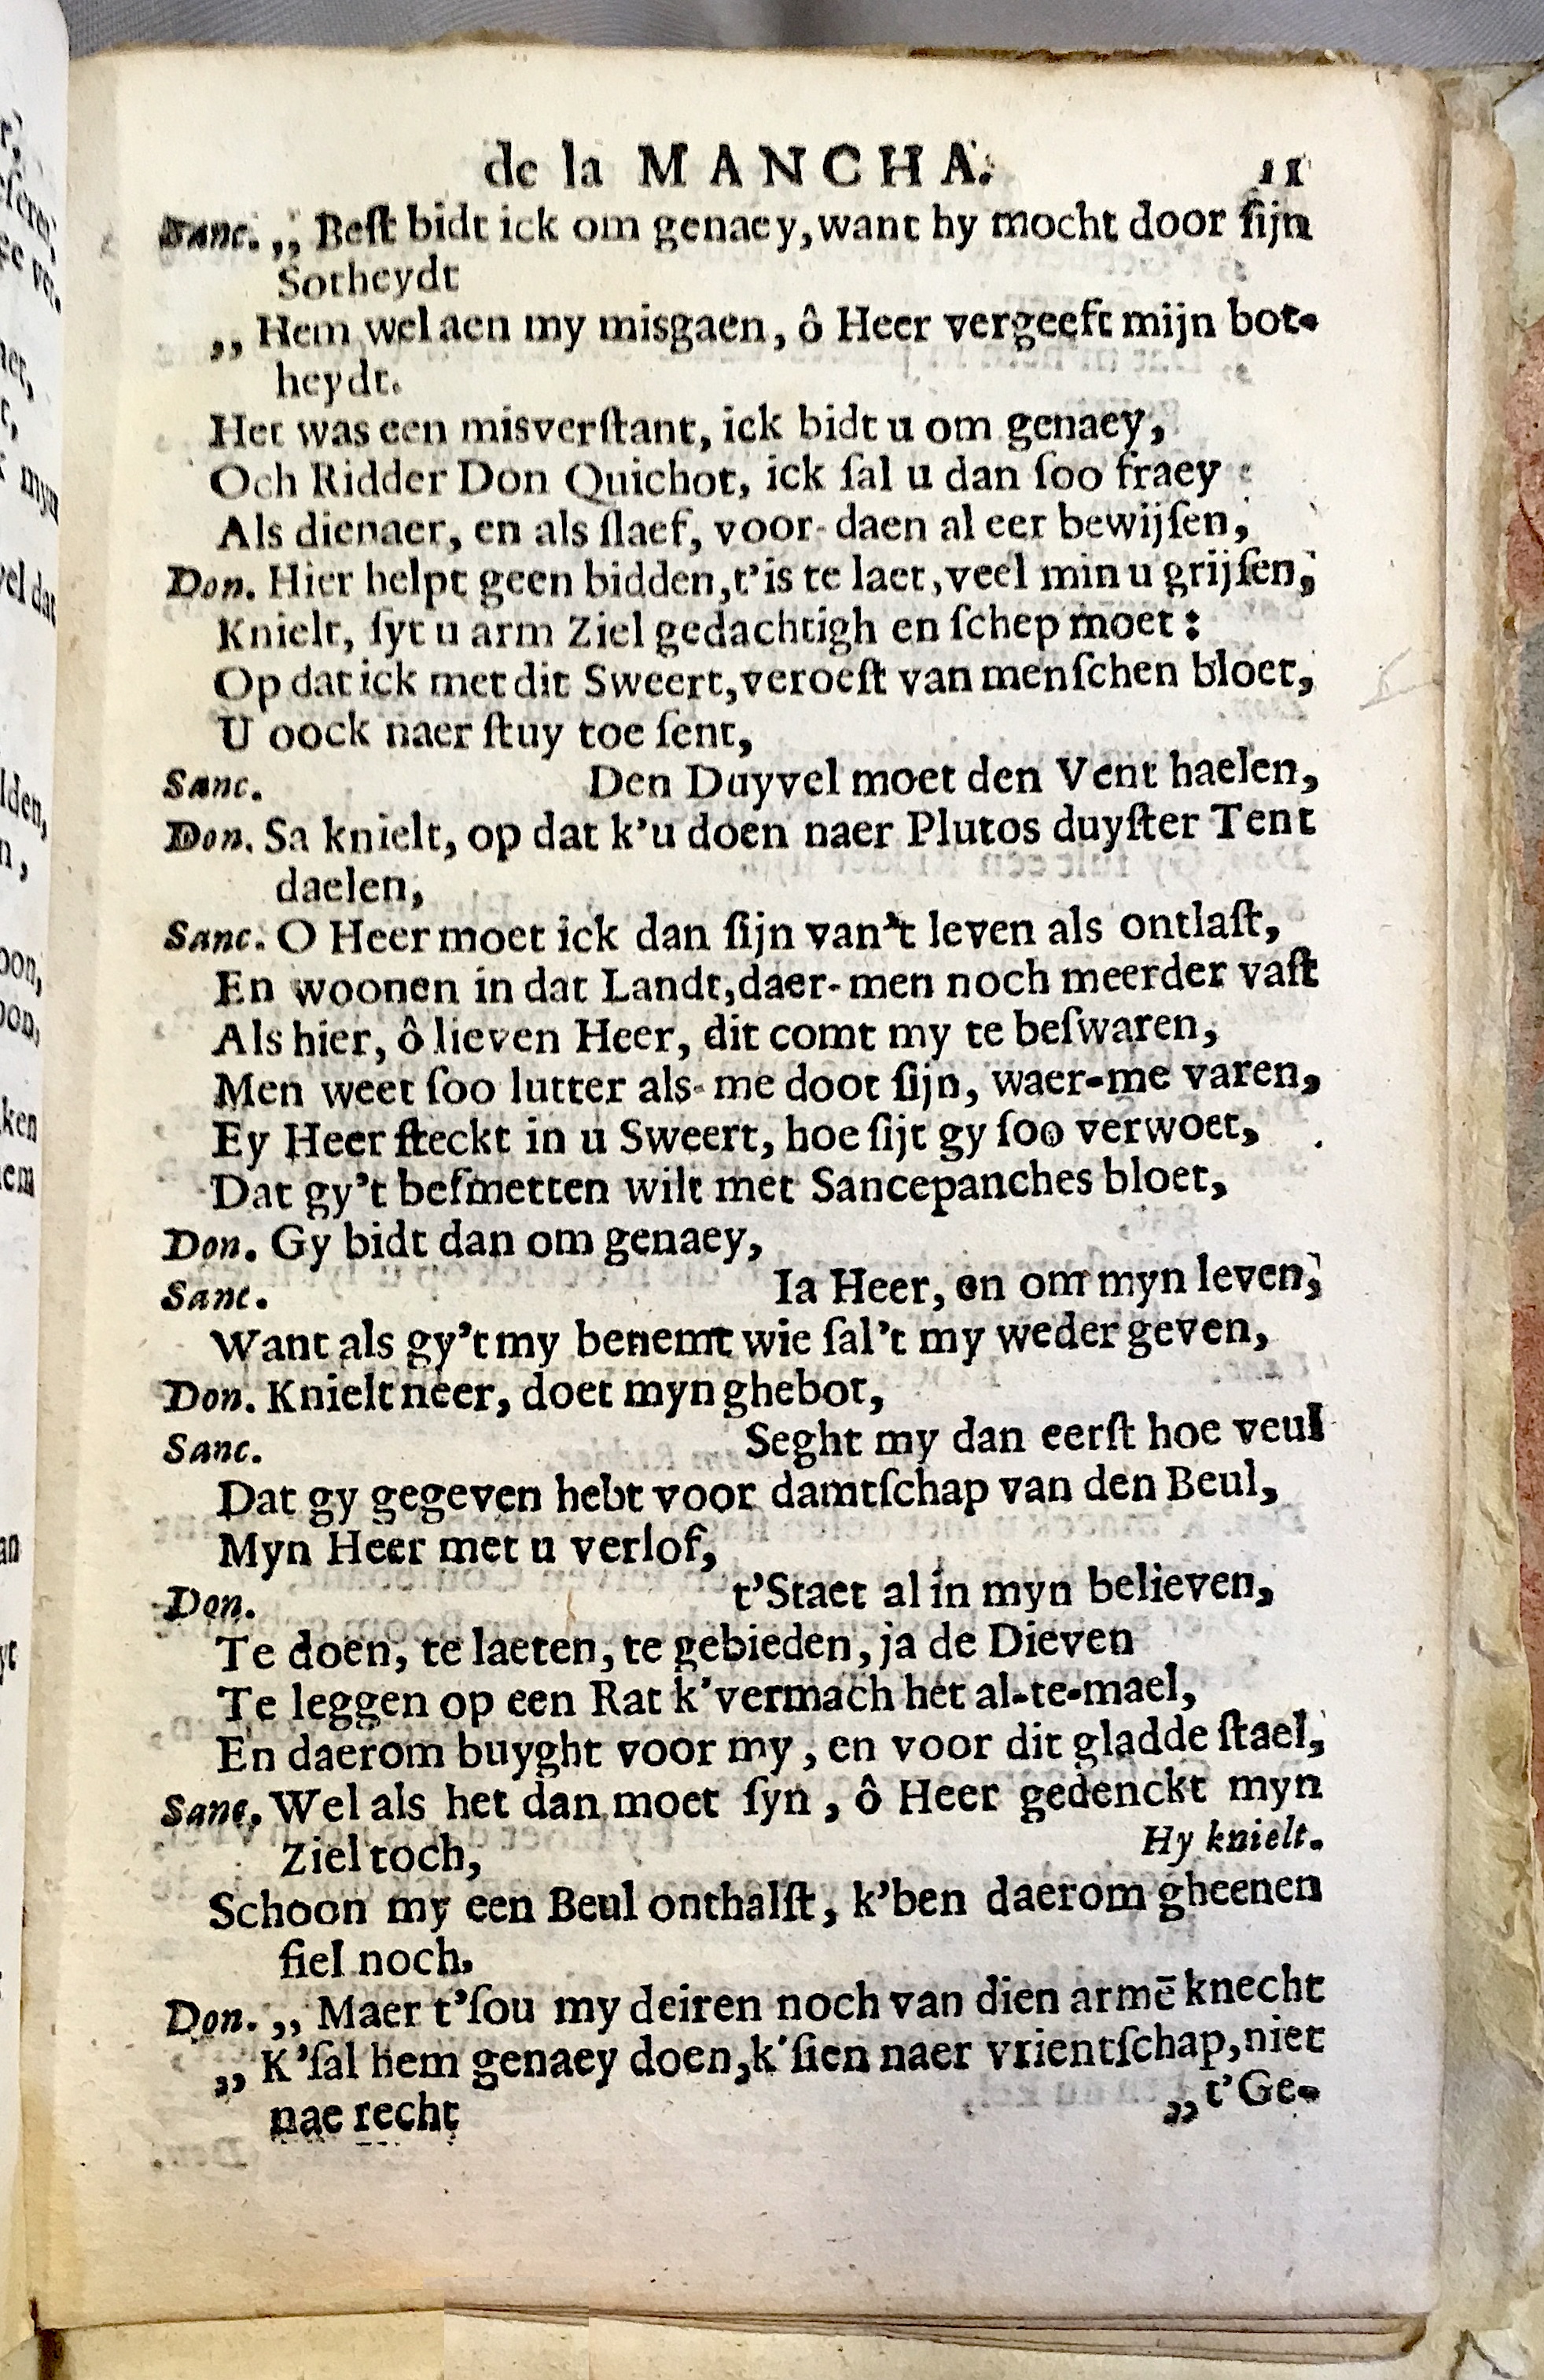 de la MANCHA. 11
Sanc. ,, Beſt bidt ick om genaey, want hy mocht door ſijn
Sotheydt
,, Hem wel aen my misgaen, ô Heer vergeeft mijn bot-
heydt.
Het was een misverſtant, ick bidt u om genaey,
Och Ridder Don Quichot, ick ſal u dan ſoo fraey
Als dienaer, en als ſlaef, voor-daen al eer bewijſen,
Don. Hier helpt geen bidden, t'is te laet, veel min u grijſen,
Knielt, ſyt u arm Ziel gedachtigh en ſchep moet:
Op dat ick met dit Sweert, veroeſt van menſchen bloet,
U oock naer ſtuy toe ſent,
Sanc. Den Duyvel moet den Vent haelen,
Don. Sa knielt, op dat k'u doen naer Plutos duyſter Tent
daelen,
Sanc. O Heer moet ick dan ſijn van't leven als ontlaſt,
En woonen in dat Landt, daer-men noch meerder vaſt
Als hier, ô lieven Heer, dit comt my te beſwaren,
Men weet ſoo lutter als-me doot ſijn, waer-me varen,
Ey Heer ſteckt in u Sweert, hoe ſijt gy ſoo verwoet,
Dat gy't beſmetten wilt met Sancepanches bloet,
Don. Gy bidt dan om genaey,
Sanc. Ia Heer, en om myn leven,
Want als gy't my benemt wie ſal't my weder geven,
Don. Knielt neer, doet myn ghebot,
Sanc. Seght my dan eerſt hoe veul
Dat gy gegeven hebt voor damtſchap van den Beul,
Myn Heer met u verlof,
Don. t'Staet al in myn believen,
Te doen, te laeten, te gebieden, ja de Dieven
Te leggen op een Rat k'vermach het al-te-mael,
En daerom buyght voor my, en voor dit gladde ſtael,
Sanc. Wel als het dan moet ſyn, ô Heer gedenckt myn
Ziel toch, Hy knielt.
Schoon my een Beul onthalſt, k'ben daerom gheenen
fiel noch.
Don. ,, Maer t'ſou my deiren noch van dien armē knecht
,, K'ſal hem genaey doen, k'ſien naer vrientſchap, niet
nae recht ,, t'Ge-